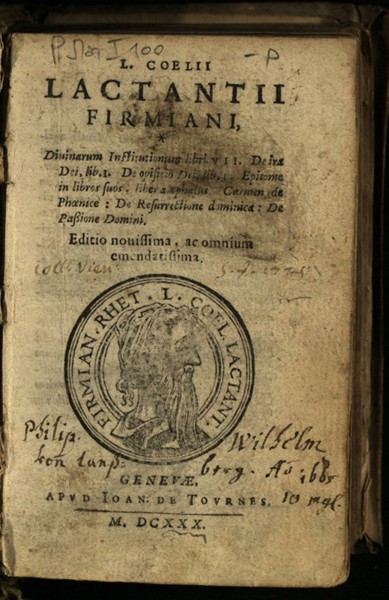 P Mor I 100
- P
L. COELII
LACTANTII
FIRMIANI,
Diuinarum Institutionum libri VII. De ira
Dei, lib. I. De opificio Dei, lib. I. Epitome
in libros suos, liber acephalus. Carmen de
Phœnice : De Resurrectione dominica : De
Paßione Domini.
Editio nouissima, ac omnium
emendatissima.
Coll. Vien
FIRMIAN. RHET. L. COEL. LACTANT.
Philip. Wilhelm
berg. Ao
GENEVÆ,
APVD IOAN. DE TOVRNES.
M. DCXXX.